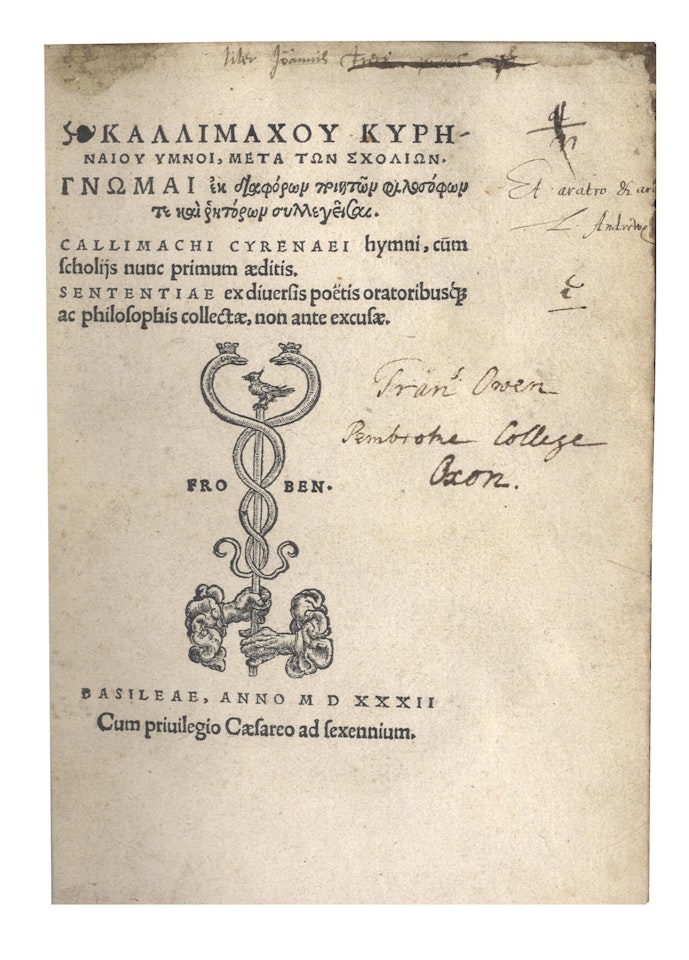 liber Joannis
ΚΑΛΛΙΜΑΧΟΥ ΚΥΡΗ-
ΝΑΙΟΥ ΥΜΝΟΙ, ΜΕΤΑ ΤΩΝ ΣΧΟΛΙΩΝ.
ΓΝΩΜΑΙ ἐκ διαφόρων ποιητῶν φιλοσόφων
τε καὶ ῥητόρων συλλεγεῖσαι.
CALLIMACHI CYRENAEI hymni, cũm
scholijs nunc primum æditis.
SENTENTIAE ex diuersis poëtis oratoribusq́
ac philosophis collectæ, non ante excusæ.
Et aratro &
L. Andrewes
Fran.s Owen
Pembroke College
Oxon.
FRO BEN.
BASILEAE, ANNO M D XXXII
Cum priuilegio Cæsareo ad sexennium.